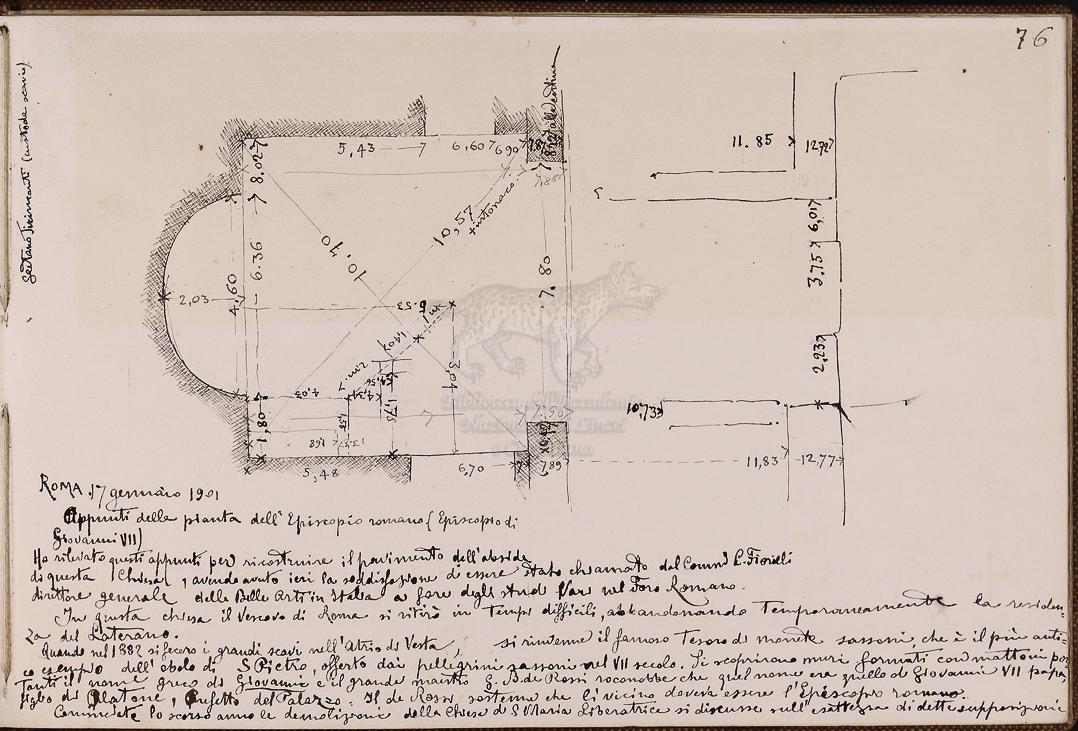 76
Gaetano (custode scavi)
5,43
6,60
6,90
7,87
8,02
11.85
12,72
6.36
10,57
+ intonaco
10,40
7.80
6,01
3,75
2,03
4,60
6.53
1m
1,40
2m.
3,04
2,23
4,03
4,34
4,56
1,75
1,80
1,68
7,50
10,733
5,48
6,70
7,89
11,83
12,77
ROMA. 17 gennaio 1901
Appunti della pianta dell'Episcopio romano (Episcopio di
Giovanni VII)
Ho rilevato questi appunti per ricostruire il pavimento dell'abside
di questa Chiesa, avendo avuto ieri la soddisfazione d'essere stato chiamato dal Comm C. Fiorilli
direttore generale delle Belle Arti in Italia a fare degli studi Vari nel Foro Romano.
In questa chiesa il Vescovo di Roma si ritirò in Tempi difficili, abbandonando Temporaneamente la residen-
za del Laterano.
Quando nel 1882 si fecero i grandi scavi nell'Atrio di Vesta, si rinvenne il famoso Tesoro di monete sassoni, che è il più anti-
co esempio dell'obolo di S Pietro, offerto dai pellegrini sassoni nel VII secolo. Si scoprirono muri formati con mattoni por
tanti il nome greco di Giovanni e il grande maestro G. B. de Rossi riconobbe che quel nome era quello di Giovanni VII papa
figlio di Platone, Prefetto del Palazzo. Il de Rossi sostenne che lì vicino doveva essere l'Episcopio romano.
Cominciate lo scorso anno le demolizioni della Chiesa di S Maria Liberatrice si discusse sull'esattezza di dette supposizioni
Biblioteca dell'Accademia
Nazionale dei Lincei
e Corsiniana